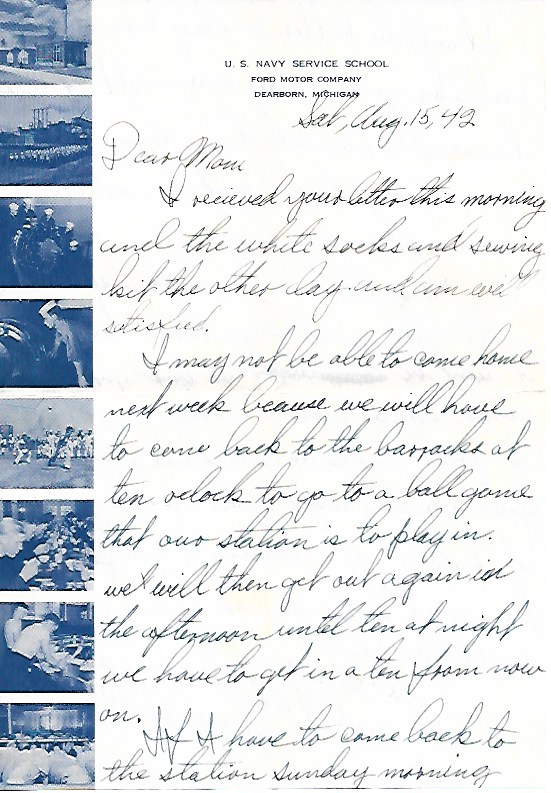 U. S. NAVY SERVICE SCHOOL
FORD MOTOR COMPANY
DEARBORN, MICHIGAN
Sat, Aug. 15, 42
Dear Mom
I recieved your letter this morning
and the white socks and sewing
kit the other day and am well
satisfied.
I may not be able to come home
next week because we will have
to come back to the barracks at
ten oclock to go to a ball game
that our station is to play in.
we will then get out again in
the afternoon until ten at night
we have to get in a ten from now
on.
If I have to come back to
the station sunday morning